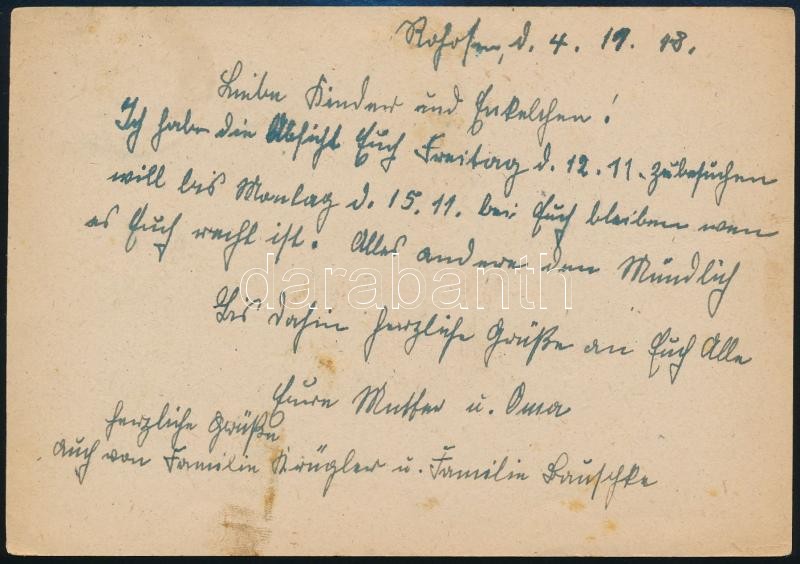 d. 4. 11. 48.
Liebe Kinder und Enkelchen!
Ich habe die Absicht Euch Freitag d. 12. 11. zubesuchen
will bis Montag d. 15. 11. bei Euch bleiben wen
es Euch recht ist. Alles andere den Mündlich
darabanth
Bis dahin herzliche Grüße an Euch Alle
Eure Mutter u. Oma
herzliche Grüße
auch von Familie Krügler u. Familie Bauschke